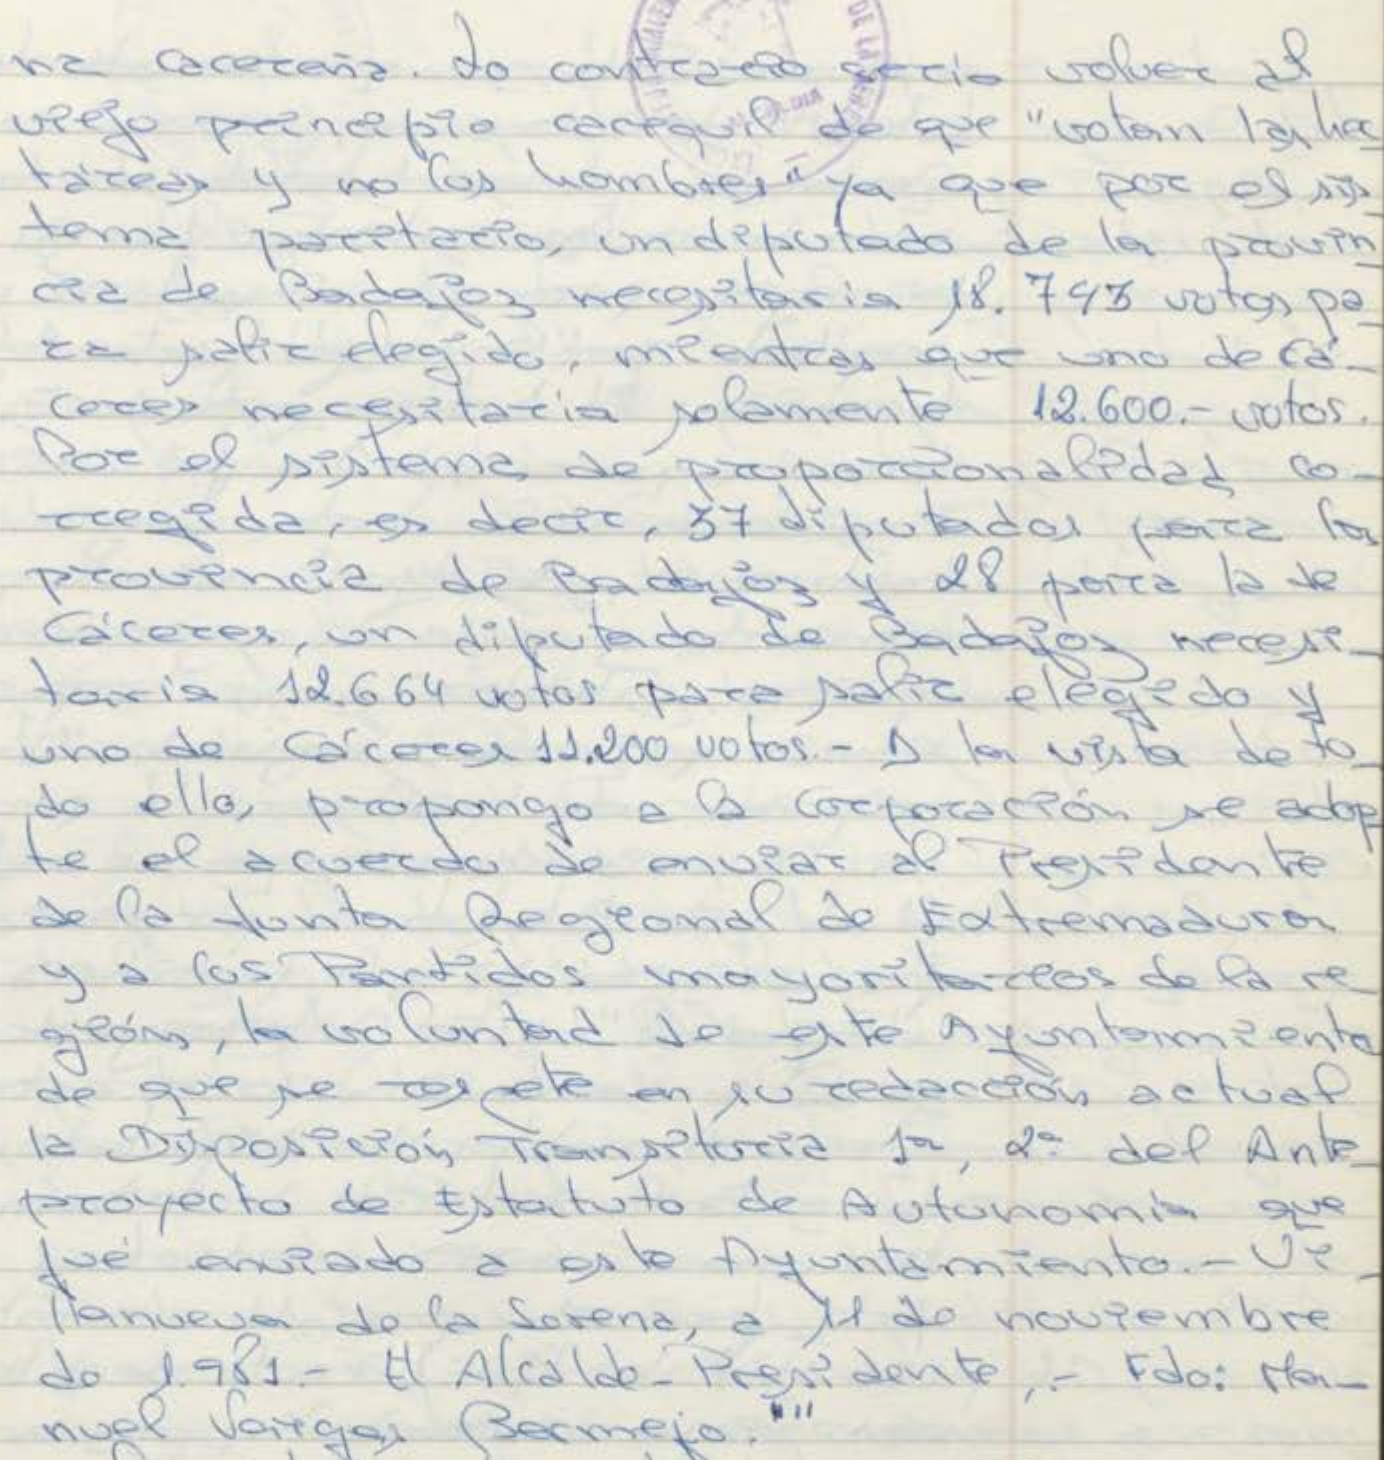 na cacereña. Lo contrario seria volver al
viejo principio caciquil de que "votan las hec
táreas y no los hombres" ya que por el sis
tema paritario, un diputado de la provin
cia de Badajoz necesitaria 18.743 votos pa
ra salir elegido, mientras que uno de Cá-
ceres necesitaria solamente 12.600.- votos.
Por el sistema de proporcionalidad co-
rregida, es decir, 37 diputados para la
provincia de Badajoz y 28 para la de
Cáceres, un diputado de Badajoz necesi-
taria 12.664 votos para salir elegido y
uno de Cáceres 11.200 votos.- A la vista de to
do ello, propongo a la Corporación se adop
te el acuerdo de enviar al Presidente
de la Junta Regional de Extremadura
y a los Partidos mayoritarios de la re
gión, la voluntad de este Ayuntamiento
de que se respete en su redacción actual
la Disposición Transitoria 1ª, 2º del Ante
proyecto de Estatuto de Autonomia que
fué enviado a este Ayuntamiento.- Vi-
llanueva de la Serena, a 11 de noviembre
de 1.981.- El Alcalde-Presidente,.- Fdo: Ma-
nuel Vargas Bermejo.""